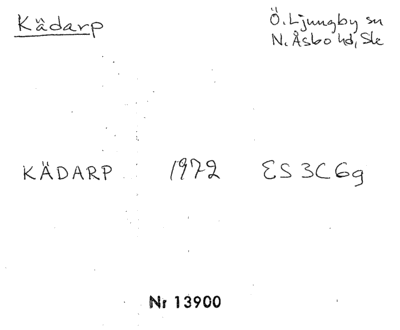 Kädarp
Ö. Ljungby sn
N. Åsbo hd, Ske
KÄDARP 1972 ES 3C6g
Nr 13900